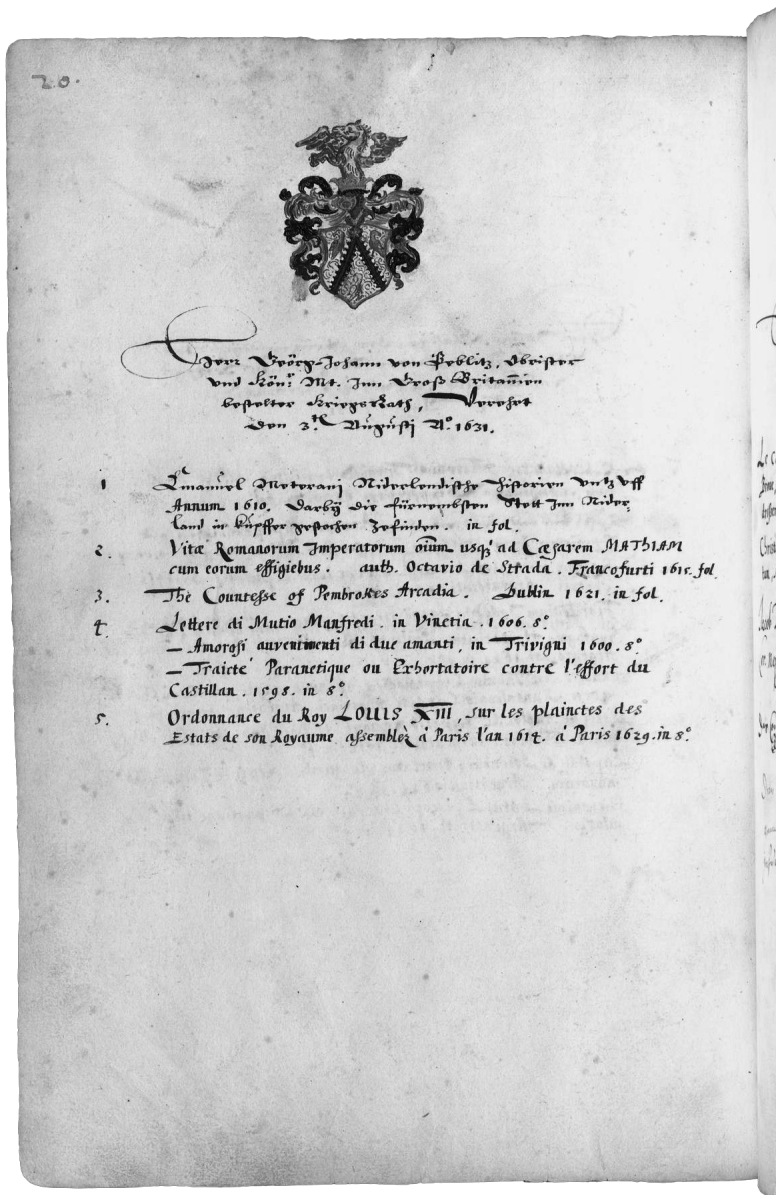 20.
Herr Geörg-Johann von Peblitz, Obrister
und Kön.r Mt. Inn Groß Britan̄ien
bestelter KriegsRath, Verehrt
den 3.th Augusti Aº. 1631.
1 Emanuel Meterani Niderlendische Historien vntz vff
Annum 1610. Darbÿ die fürnembsten Stett Inn Nider-
land in kupffer gestochen Zefinden. in fol.
2. Vitæ Romanorum Imperatorum oīum usqꝫ ad Cæsarem MATHIAM
cum eorum effigiebus. auth. Octavio de Strada. Francofurti 1615. fol
3. The Countesse of Pembrokes Arcadia. Dublin 1621. in fol.
4. Lettere di Mutio Manfredi. in Vinetia. 1606. 8º
— Amorosi auvenimenti di due amanti, in Trivigni 1600. 8º
— Traicté Paranetique ou Exhortatoire contre l'effort du
Castillan. 1598. in 8º
5. Ordonnance du Roy LOUIS XIII, sur les plainctes des
Estats de son Royaume assemblez à Paris l'an 1614. à Paris 1629. in 8º